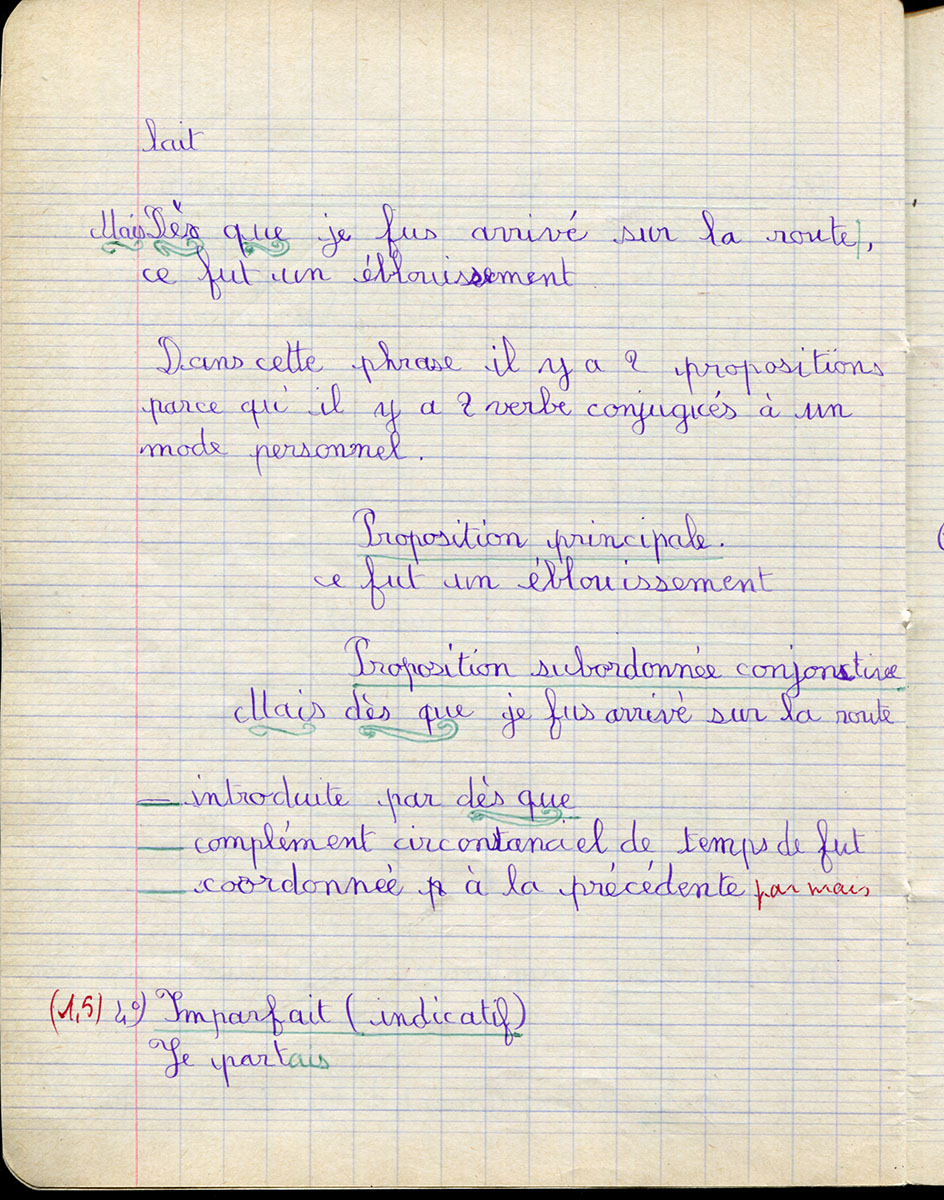 lait
Mais Dès que je fus arrivé sur la route,
ce fut un éblouissement
Dans cette phrase il y a 2 propositions
parce qu'il y a 2 verbe conjugués à un
mode personnel.
Proposition principale.
ce fut un éblouissement
Proposition subordonnée conjonctive
Mais dès que je fus arrivé sur la route
— introduite par dès que
— complément circontanciel de temps de fut
— coordonnée à la précédente par mais
(1,5) 4°) Imparfait (indicatif)
Je partais